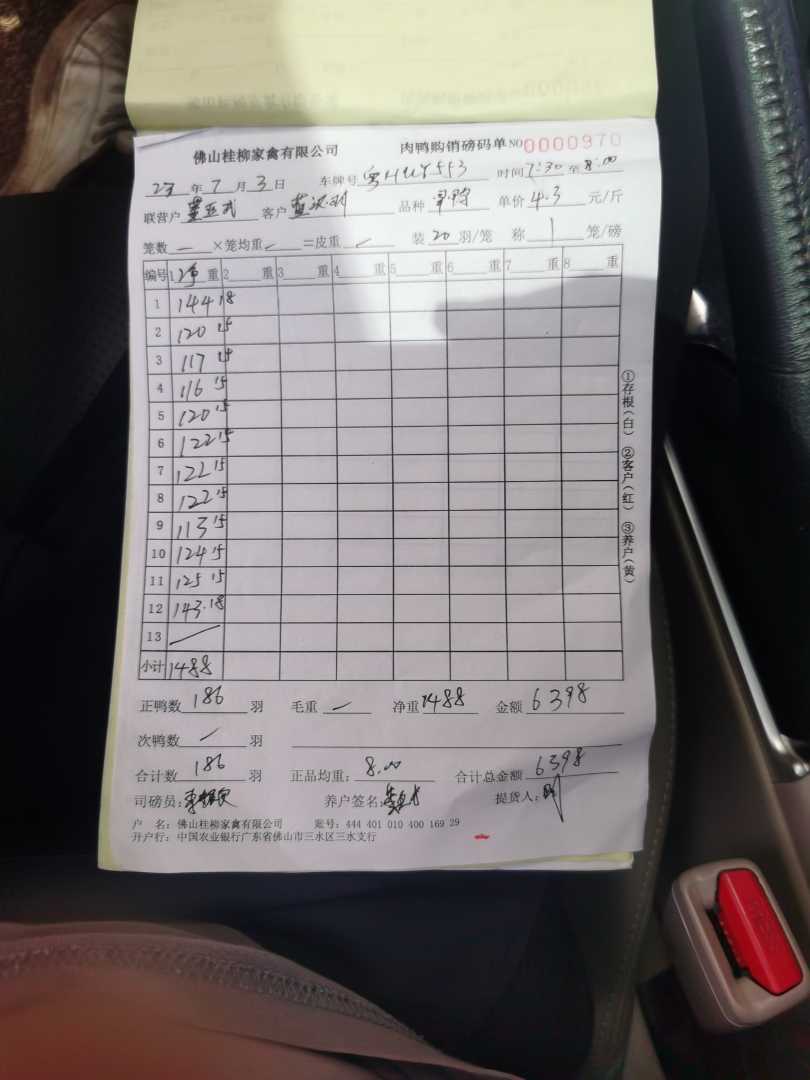 佛山桂柳家禽有限公司 肉鸭购销磅码单 NO 0000970
23年 7月 3日 车牌号 时间 7:30 至 8:00
联营户 客户 品种 单价 4.3 元/斤
笼数 — ×笼均重 ✓ =皮重 ✓ 装 20 羽/笼 称 1 笼/磅
编号 1 净 重 2 重 3 重 4 重 5 重 6 重 7 重 8 重
1 144 18
2 120 15
3 117 15
4 116 15
5 120 15
6 122 15
7 122 15
8 122 15
9 113 15
10 124 15
11 125 15
12 143.18
13
小计 1488
正鸭数 186 羽 毛重 — 净重 1488 金额 6398
次鸭数 / 羽
合计数 186 羽 正品均重: 8.00 合计总金额 6398
司磅员: 养户签名: 提货人:
户 名: 佛山桂柳家禽有限公司 账号: 444 401 010 400 169 29
开户行: 中国农业银行广东省佛山市三水区三水支行
①存根(白) ②客户(红) ③养户(黄)